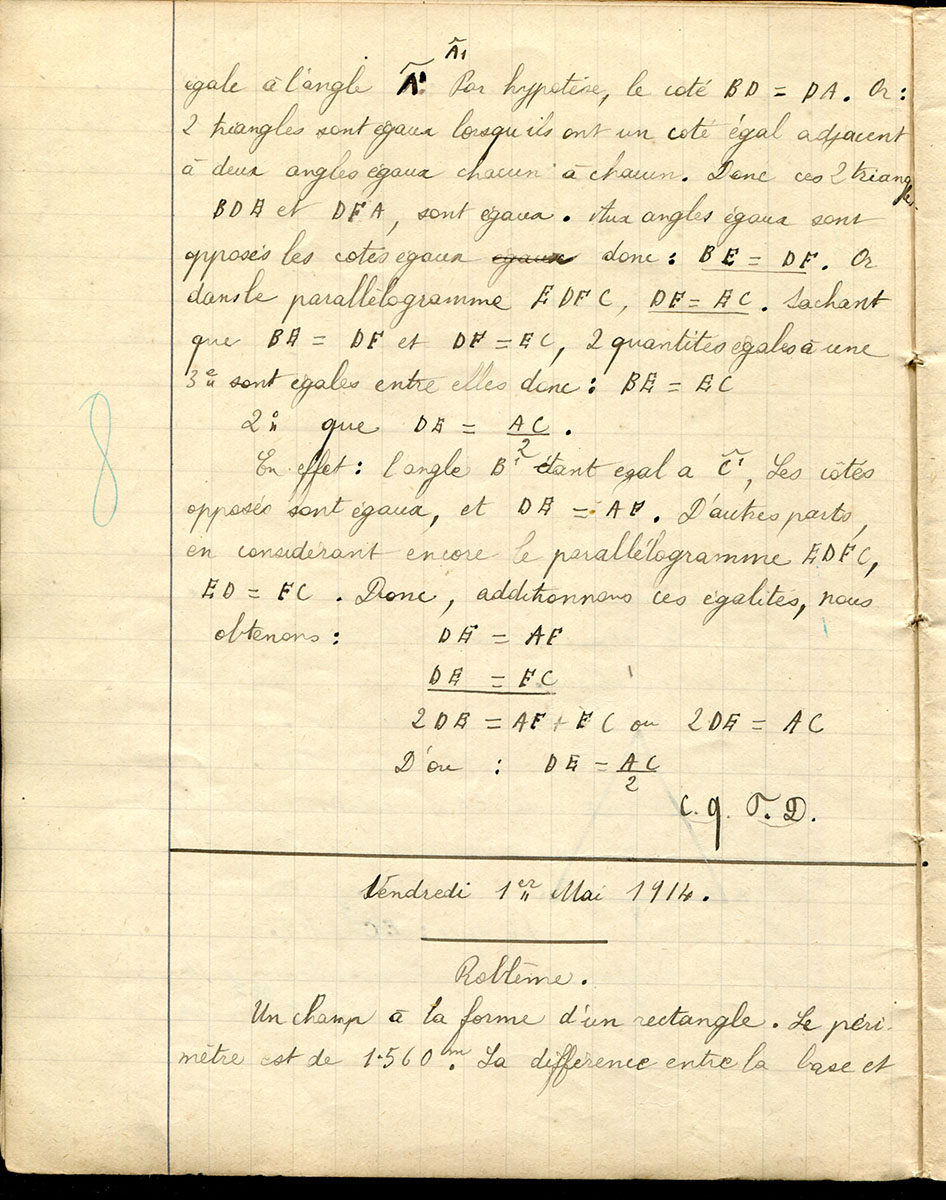 Â1
égale à l'angle Â1. Par hypotèse, le coté BD = DA. Or :
2 triangles sont égaux lorsqu'ils ont un coté égal adjacent
à deux angles égaux chacun à chacun. Donc ces 2 triangles
BDE et DFA, sont égaux. Aux angles égaux sont
opposés les cotés égaux egaux donc : BE = DF. Or
dans le parallélogramme EDFC, DF = EC. Sachant
que BE = DF et DF = EC, 2 quantités égales à une
3e sont égales entre elles donc : BE = EC
2° que DE = AC/2.
En effet : l'angle B étant egal a Ĉ1, Les côtés
opposés sont égaux, et DE = AF. D'autres parts,
en considérant encore le parallélogramme EDFC,
ED = FC. Donc, additionnons ces égalités, nous
obtenons : DE = AF
DE = FC
2DE = AF + FC ou 2DE = AC
D'ou : DE = AC/2
C.q.F.D.
8
Vendredi 1er Mai 1914.
Problème.
Un champ à la forme d'un rectangle. Le péri-
mètre est de 1.560m. La différence entre la base et